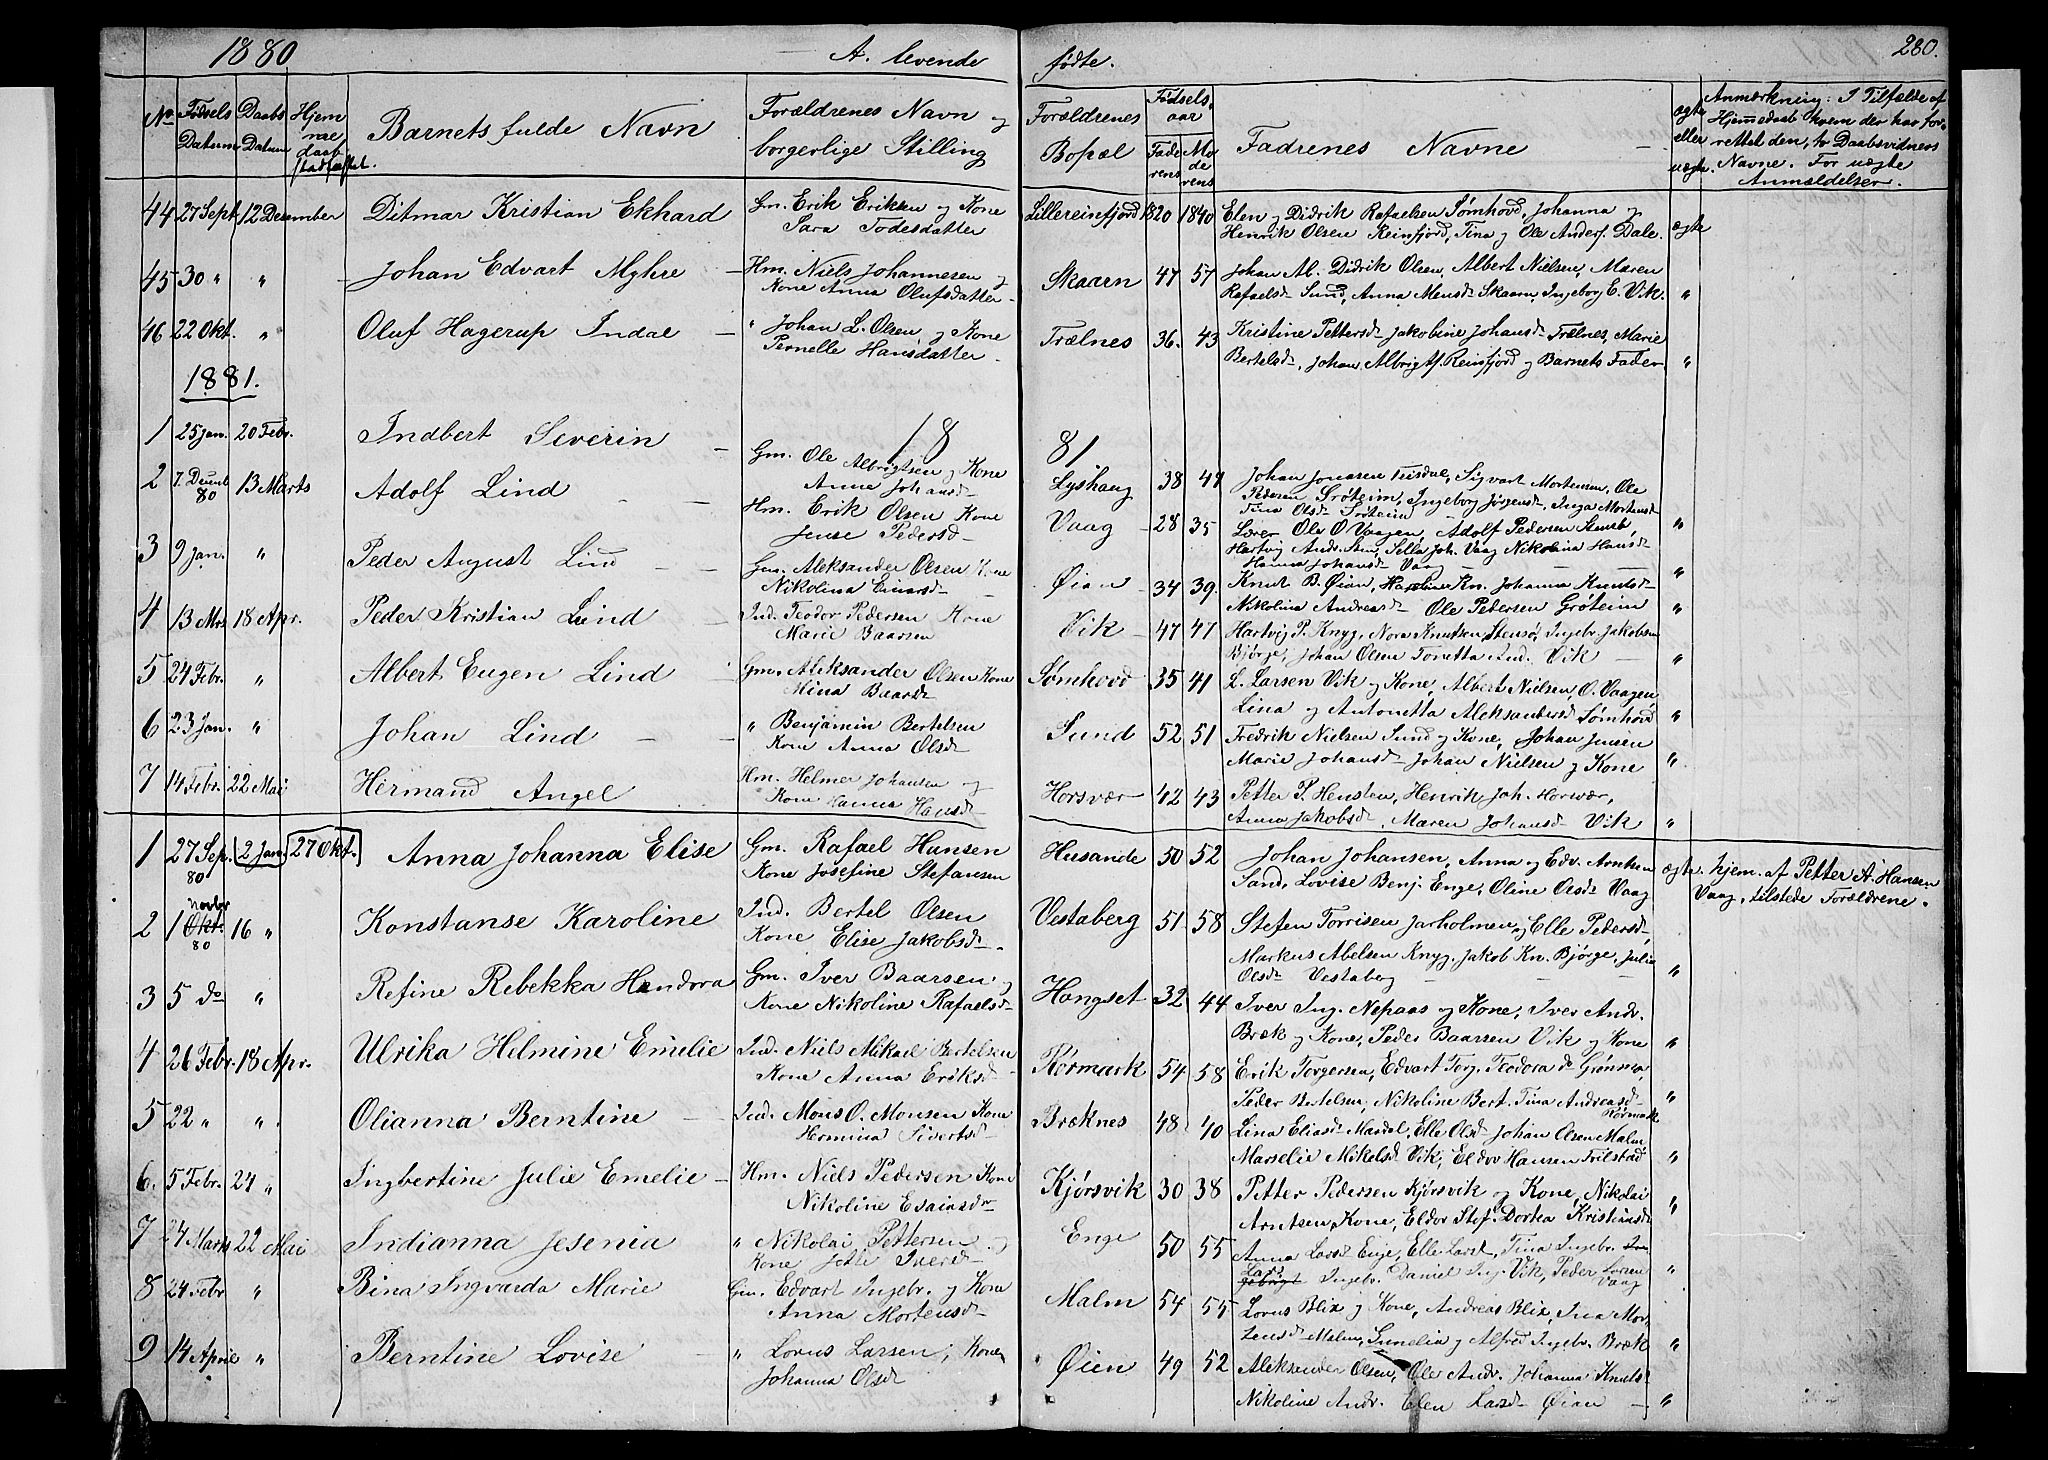 1880 A. levende fødte. 280.
No Fødsels Datum Daabs Datum Hjemmedaab stadfæstet. Barnets fulde Navn Forældrenes Navn og borgerlige Stilling Forældrenes Bopæl Fødselsaar Faderens Moderens Fadrenes Navne ægte eller uægte. Anmærkning: I Tilfælde af Hjemmedaab hvem der har forrettet den, to Daabsvidners Navne. For uægte Anmældelser.
44 27 Sept. 12 Desember Ditmar Kristian Ekhard Gm. Erik Eriksen og Kone Sara Todesdatter Lillereinfjord 1820 1840 Elen og Didrik Rafaelsen Sømhovd, Johanna og Henrik Olsen Reinfjord, Tina og Ole Anders. Dale. ægte
45 30 " " Johan Edvart Myhre Hm. Niels Johannesen og Kone Anna Olufsdatter Skaarn 47 57 Johan Al. Didrik Olsen, Albert Nielsen, Maren Rafaelsd. Sund, Anna Mensd. Skaarn, Ingeborg E. Vik. "
46 22 Okt. " Oluf Hagerup Indal " Johan L. Olsen og Kone Pernelle Hansdatter Trælnes 36 43 Kristine Pettersd. Jakobine Johansd. Trælnes, Marie Bertelsd., Johan Albrigts. Reinfjord og Barnets Fader "
1881.
1 25 Jan. 20 Febr. Indbert Severin 18 81
Gm. Ole Albrigtsen og Kone Anne Johansd. Lyshaug 38 47 Johan Jonasen, Sigvart Mortensen, Ole Pedersen Grøteim, Ingeborg Jørgensd., Inga Mortensd. Tina Olsd. Grøteim "
2 7 Decemb 80 13 Marts Adolf Lind Hm. Erik Olsen Kone Jense Pedersd. Vaag 28 35 Lærer Ole O. Vaagen, Adolf Pedersen, Hartvig Andr. Sten, Silla Joh. Vaag Nikolina Hansd. Hanna Johansd. Vaag "
3 9 Jan. " Peder August Lind Gm. Aleksander Olsen Kone Nikolina Einarsd. Øian 34 39 Knut B. Øian, Karoline Kn. Johanna Knutsd. Nikolina Andreasd. Ole Pedersen Grøteim "
4 13 Mrs 18 Apr. Peder Kristian Lind Ind. Teodor Pedersen Kone Marie Baarsen Vik 47 47 Hartvig P. Knyg, Nora Knutsen, Stensø, Ingebr. Jakobsen Bjørge, Johan Olsen Tonetta And. Vik "
5 24 Febr. " Albert Eugen Lind Gm. Aleksander Olsen Kone Mina Baarsd. Sømhovd 35 41 L. Larsen Vik og Kone, Albert Nielsen, O. Vaagen Lina og Antonetta Aleksandersd. Sømhovd "
6 23 Jan. " Johan Lind " Benjamin Bertelsen Kone Anna Olsd. Sund 52 51 Fredrik Nielsen Sund og Kone, Johan Jensen Marie Johansd. Johan Nielsen og Kone "
7 14 Febr. 22 Mai Hermand Angel Hm. Helmer Johansen og Kone Hanna Hansd. Horsvær 42 43 Petter P. Hensten, Henrik Joh. Horsvær, Anna Jakobsd., Maren Johansd. Vik "
1 27 Sep. 80 2 Jan. 27 Okt. Anna Johanna Elise Gm. Rafael Hansen Kone Josefine Stefansen Husande 50 52 Johan Johansen, Anna og Edv. Arntsen Sand, Lovise Benj. Enge, Oline Olsd. Vaag ægte. hjem. af Petter A. Hansen Vaag, tilstede Forældrene.
2 1 Novbr Okt. 80 16 " Konstanse Karoline Ind. Bertel Olsen Kone Elise Jakobsd. Vestaberg 51 58 Stefen Torrisen Jarholmen og Elle Pedersd., Markus Abelsen Knyg, Jakob Kn. Bjørge, Julie Olsd. Vestaberg "
3 5 do " Refine Rebekka Handora Gm. Iver Baarsen og Kone Nikoline Rafaelsd. Hongset 32 44 Iver Ing. Nepaas og Kone, Iver Andr. Bræk og Kone, Peder Baarsen Vik og Kone "
4 26 Febr. 18 Apr. Ulrika Helmine Emelie Ind. Niels Mikael Bertelsen Kone Anna Eriksd. Rørmark 54 58 Erik Torgersen, Edvart Torg. Teodora de Grønmo, Peder Bertelsen, Nikoline Bert. Tina Andreasd. Rørmark "
5 22 " " Olianna Berntine Ind. Mons O. Monsen Kone Hermina Sivertsd. Bræknes 48 40 Lina Eliasd. Mardal, Elle Olsd. Johan Olsen Malm, Marselie Mikelsd. Vik, Eldov Hansen Trilstad "
6. 5 Febr. 24 " Ingbertine Julie Emelie Hm. Niels Pedersen Kone Nikoline Esaiasdr. Kjørsvik 30 38 Petter Pedersen Kjørsvik og Kone, Nikolai Arntsen, Kone, Eldor Stef. Dortea Kristiansd. "
7 24 Marts 22 Mai Indianna Jesenia " Nikolai Pettersen og Kone Jette Iversd. Enge 50 55 Anna Larsd. Enge, Elle Larsd., Tina Ingebr. Ingebr. Daniel Ing. Vik, Peder Vaag "
8 24 Febr. " Bina Ingvarda Marie Gm. Edvart Ingebr. og Kone Anna Mortensd. Malm 54 55 Lorns Blix og Kone, Andreas Blix, Ina Mortensd. Malm, Lunelia og Alfred Ingebr. Bræk "
9 14 April " Berntine Lovise " Lorns Larsen, Kone Johanna Olsd. Øien 49 52 Aleksander Olsen, Ole Andr. Johanna Knuts. Nikoline Andr. Elen Larsd. Øian "